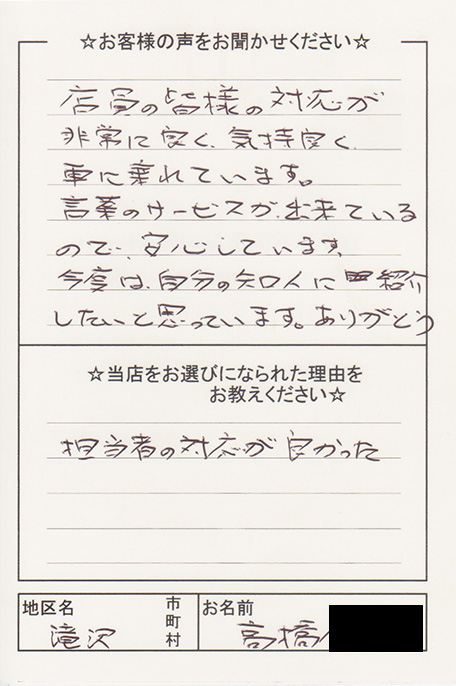 ☆お客様の声をお聞かせください☆
店員の皆様の対応が
非常に良く、気持良く、
車に乗れています。
言葉のサービスが、出来ている
ので、安心しています。
今度は、自分の知人に紹介
したいと思っています。ありがとう
☆当店をお選びになられた理由を
お教えください☆
担当者の対応が良かった
地区名
滝沢
市
町
村
お名前
高橋